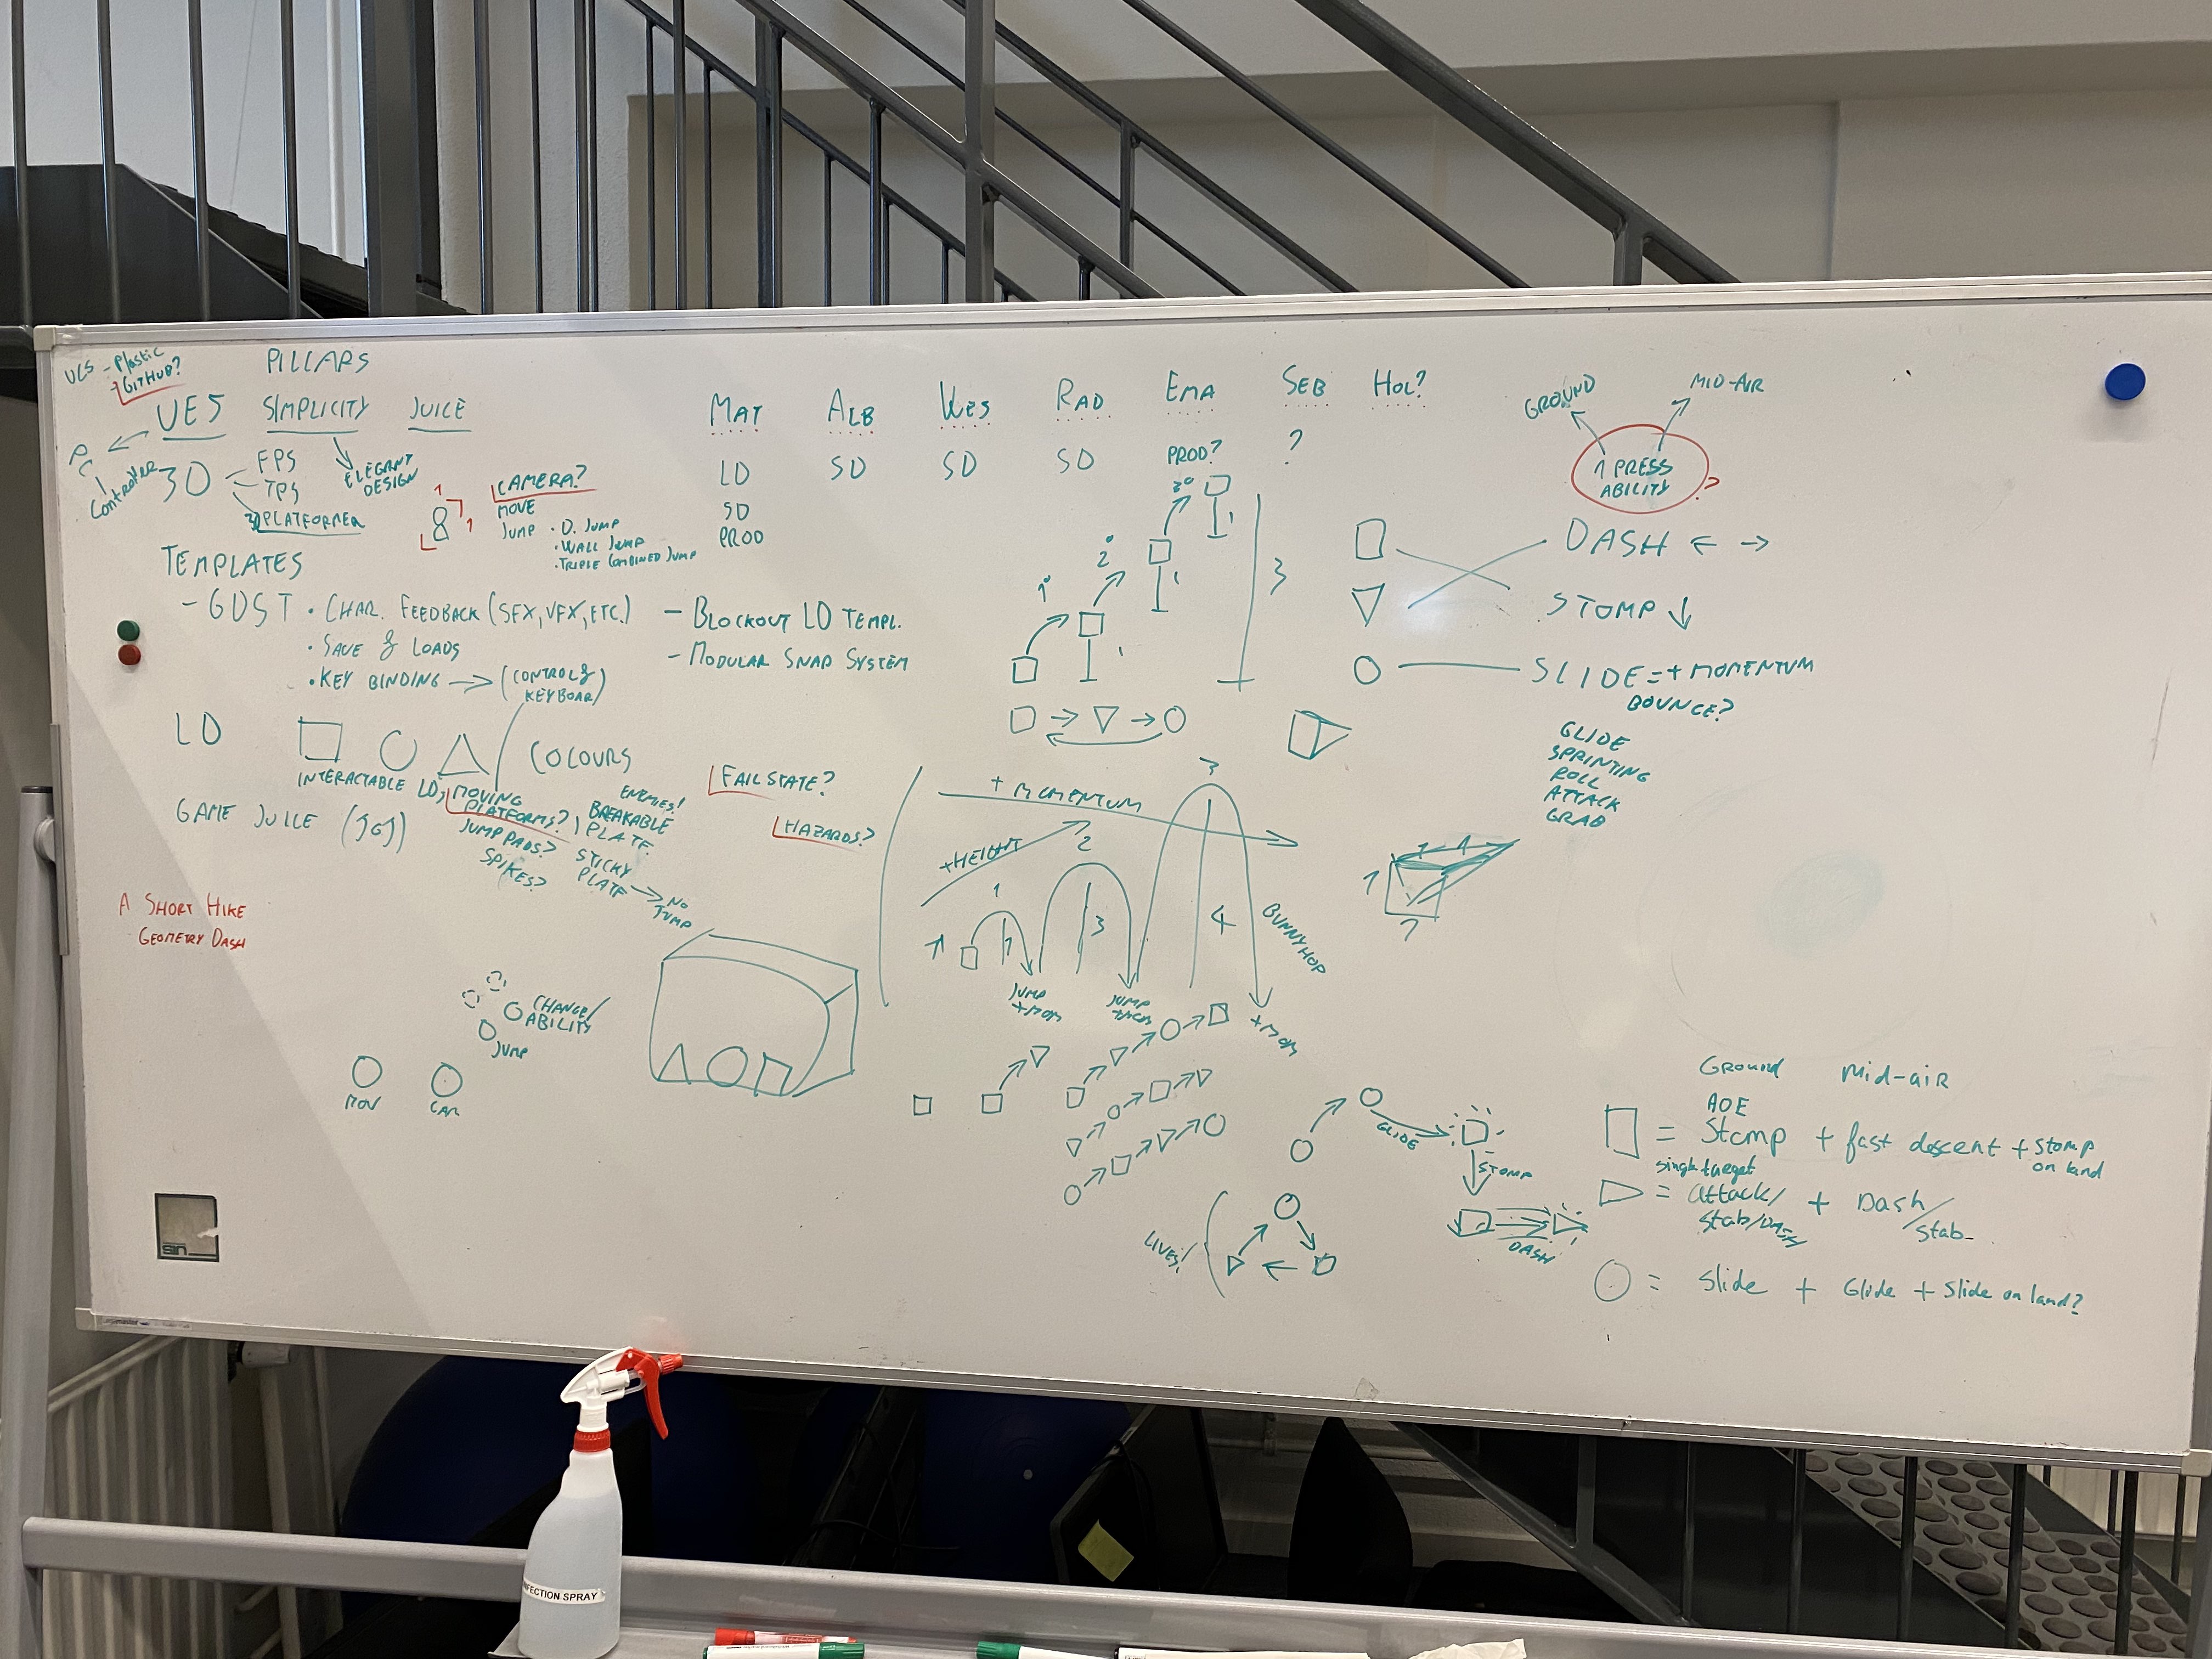 VCS - Plastic
- GITHUB?
PILLARS
UE5 SIMPLICITY JUICE
PC
CONTROLLER
3D
FPS
TPS
3D PLATFORMER
ELEGANT
DESIGN
1
1
CAMERA?
MOVE
JUMP · D. JUMP
· WALL JUMP
· TRIPLE COMBINED JUMP
TEMPLATES
- GDST · CHAR. FEEDBACK (SFX, VFX, ETC.)
· SAVE & LOADS
· KEY BINDING → (CONTROL &
KEYBOAR)
- BLOCKOUT LD TEMPL.
- MODULAR SNAP SYSTEM
LD
COLOURS
INTERACTABLE LD, MOVING
PLATFORMS?,
JUMP PADS?
SPIKES?
ENEMIES!
BREAKABLE
PLATF.
STICKY
PLATF → NO
JUMP
GAME JUICE (JGJ)
FAIL STATE?
HAZARDS?
A SHORT HIKE
GEOMETRY DASH
CHANGE/
ABILITY
JUMP
MOV
CAM
MAT ALB WES RAD EMA SEB HOL?
LD SD SD SD PROD? ?
SD
PROD
1°
2°
3°
1
1
1
3
+ MOMENTUM
+HEIGHT
1
2
3
1
3
4
JUMP
+MOM
JUMP
+MOM
+MOM
BUNNYHOP
GROUND
MID-AIR
1 PRESS
ABILITY
?
DASH ← →
STOMP ↓
SLIDE = + MOMENTUM
BOUNCE?
GLIDE
SPRINTING
ROLL
ATTACK
GRAB
GLIDE
STOMP
DASH
LIVES!
Ground Mid-air
AOE
= Stomp + fast descent + stomp
on land
single target
= attack/ + Dash/
stab/DASH stab
= Slide + Glide + Slide on land?
sin
INFECTION SPRAY